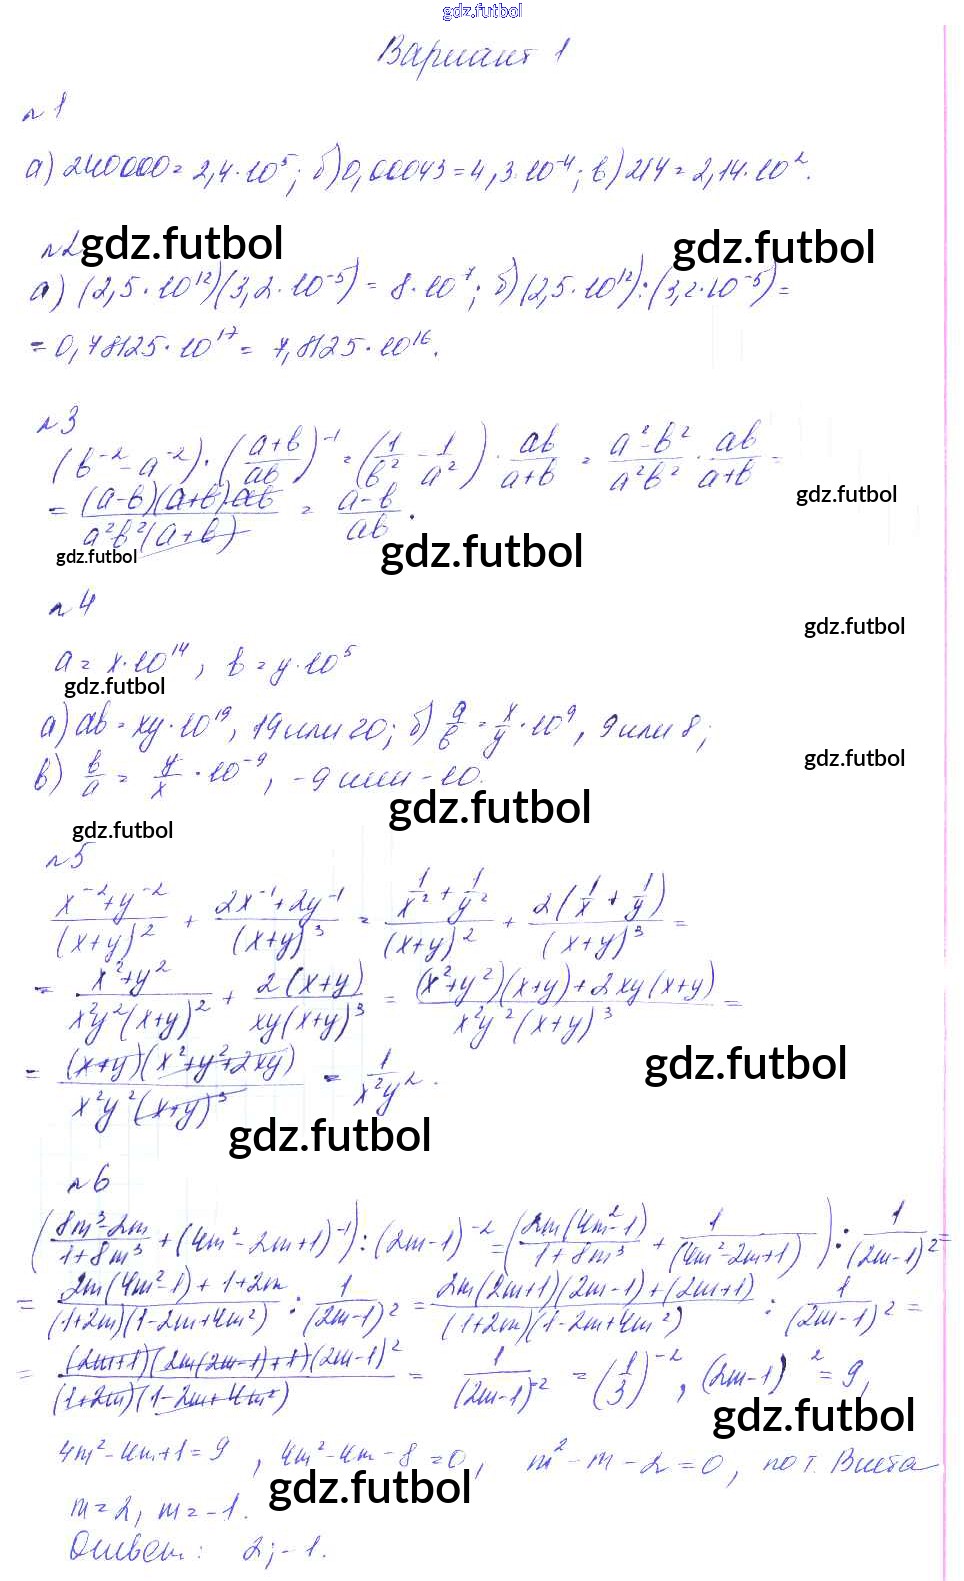 gdz.futbol
Вариант 1
№1
а) 240000 = 2,4·10⁵; б) 0,00043 = 4,3·10⁻⁴; в) 214 = 2,14·10².
№2 gdz.futbol gdz.futbol
а) (2,5·10¹²)(3,2·10⁻⁵) = 8·10⁷; б) (2,5·10¹²):(3,2·10⁻⁵) =
= 0,78125·10¹⁷ = 7,8125·10¹⁶.
№3
(b⁻² - a⁻²)·((a+b)/ab)⁻¹ = (1/b² - 1/a²)·ab/(a+b) = (a²-b²)/(a²b²)·ab/(a+b) =
gdz.futbol
= (a-b)(a+b)·ab/(a²b²(a+b)) = (a-b)/ab.
gdz.futbol gdz.futbol
№4
gdz.futbol
a = x·10¹⁴, b = y·10⁵
gdz.futbol
а) ab = xy·10¹⁹, 19 или 20; б) a/b = x/y·10⁹, 9 или 8;
gdz.futbol
в) b/a = y/x·10⁻⁹, -9 или -10.
gdz.futbol
gdz.futbol
№5
(x⁻²+y⁻²)/(x+y)² + (2x⁻¹+2y⁻¹)/(x+y)³ = (1/x² + 1/y²)/(x+y)² + 2(1/x + 1/y)/(x+y)³ =
= (x²+y²)/(x²y²(x+y)²) + 2(x+y)/(xy(x+y)³) = ((x²+y²)(x+y)+2xy(x+y))/(x²y²(x+y)³) =
= (x+y)(x²+y²+2xy)/(x²y²(x+y)³) = 1/(x²y²).
gdz.futbol
gdz.futbol
№6
((8m³-2m)/(1+8m³) + (4m²-2m+1)⁻¹):(2m-1)⁻² = (2m(4m²-1)/(1+8m³) + 1/(4m²-2m+1)) : 1/(2m-1)² =
= (2m(4m²-1)+1+2m)/((1+2m)(1-2m+4m²)) : 1/(2m-1)² = (2m(2m+1)(2m-1)+(2m+1))/((1+2m)(1-2m+4m²)) : 1/(2m-1)² =
= (2m+1)(2m(2m-1)+1)(2m-1)²/((1+2m)(1-2m+4m²)) = 1/(2m-1)⁻² = (1/3)⁻², (2m-1)² = 9,
gdz.futbol
4m²-4m+1=9, 4m²-4m-8=0, m²-m-2=0, по т. Виета
gdz.futbol
m=2, m=-1.
Ответ: 2; -1.